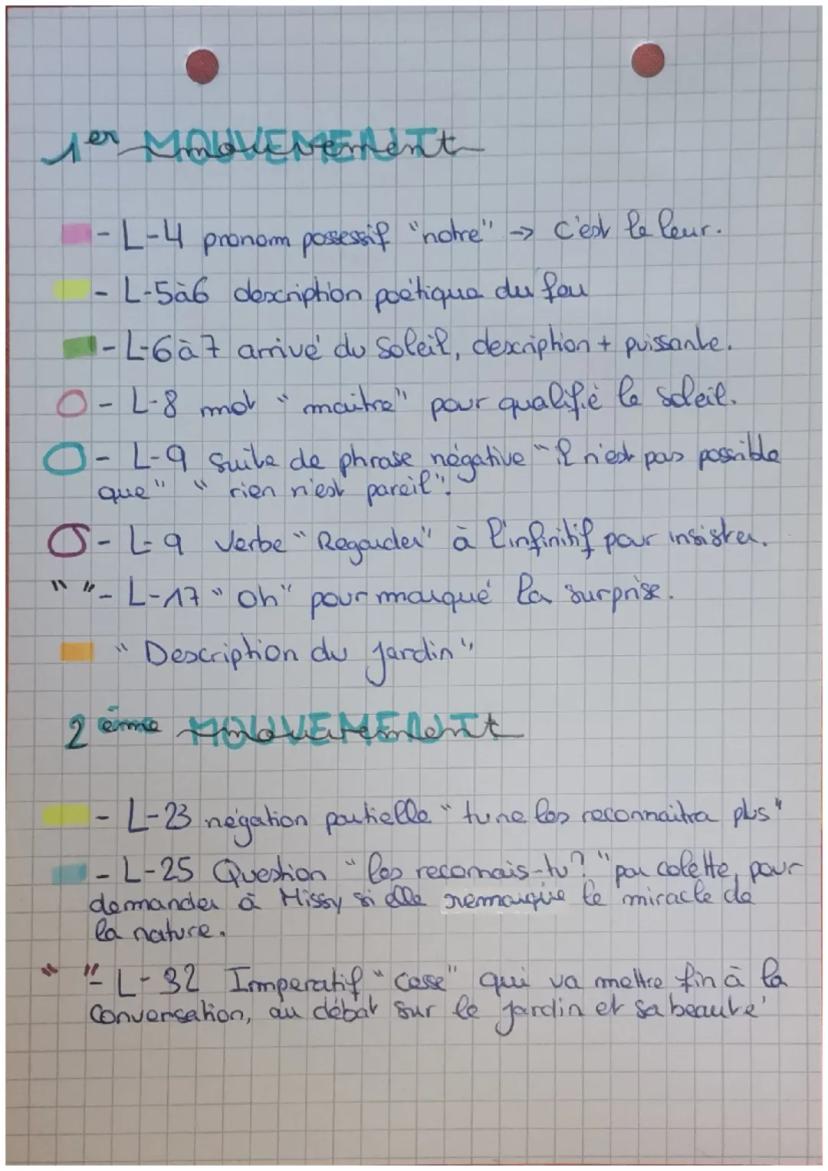 1er MOUVEMENT mouvement
- L-4 pronom possessif "notre" → c'est le leur.
- L-5à6 description poétique du feu
- L-6à7 arrivé du Soleil, description + puissante.
- L-8 mot "maitre" pour qualifié le soleil.
- L-9 suite de phrase négative "il n'est pas possible
que" "rien n'est pareil".
- L-9 Verbe "Regarder" à l'infinitif pour insister.
" "- L-17 "Oh" pour marqué la surprise.
"Description du jardin"
2ème MOUVEMENT mouvement
- L-23 négation partielle "tu ne les reconnaitra plus"
- L-25 Question "les reconnais-tu?" par colette, pour
demander à Missy si elle remarque le miracle de
la nature.
" "- L-32 Imperatif "Cesse" qui va mettre fin à la
conversation, au débat sur le jardin et sa beauté